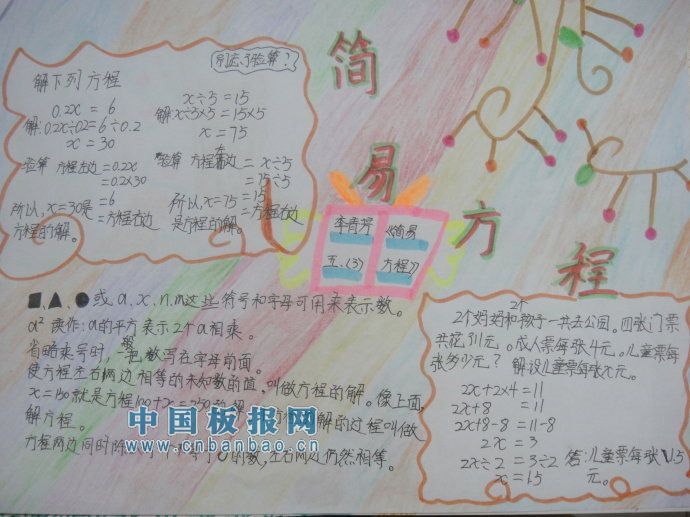 简易方程
别忘了验算?
解下列方程
0.2x = 6
解:0.2x÷0.2=6÷0.2
x = 30
验算 方程左边=0.2x
=0.2×30
=6
所以,x=30是=方程右边
方程的解。
x÷5=15
解x÷5×5=15×5
x = 75
验算 方程左边=x÷5
=75÷5
=15
所以,x=75=方程右边
是方程的解。
李雨芳
五、(3)
《简易
方程》
■、▲、●或a、x、n、m这些符号和字母可用来表示数。
a² 读作:a的平方表示2个a相乘。
省略乘号时,一般把数写在字母前面。
使方程左右两边相等的未知数的值,叫做方程的解。像上面,
x=150就是方程100+x=250的解。解的过程叫做
解方程。
方程两边同时除以的数,左右两边仍然相等。
2个妈妈和2个孩子一共去公园。四张门票
共花11元。成人票每张4元。儿童票每
张多少元? 解设儿童票每张x元。
2x+2×4=11
2x+8 =11
2x+8-8 =11-8
2x = 3
2x÷2 =3÷2 答:儿童票每张1.5
x =1.5 元。
中国板报网
www.cnbanbao.cn